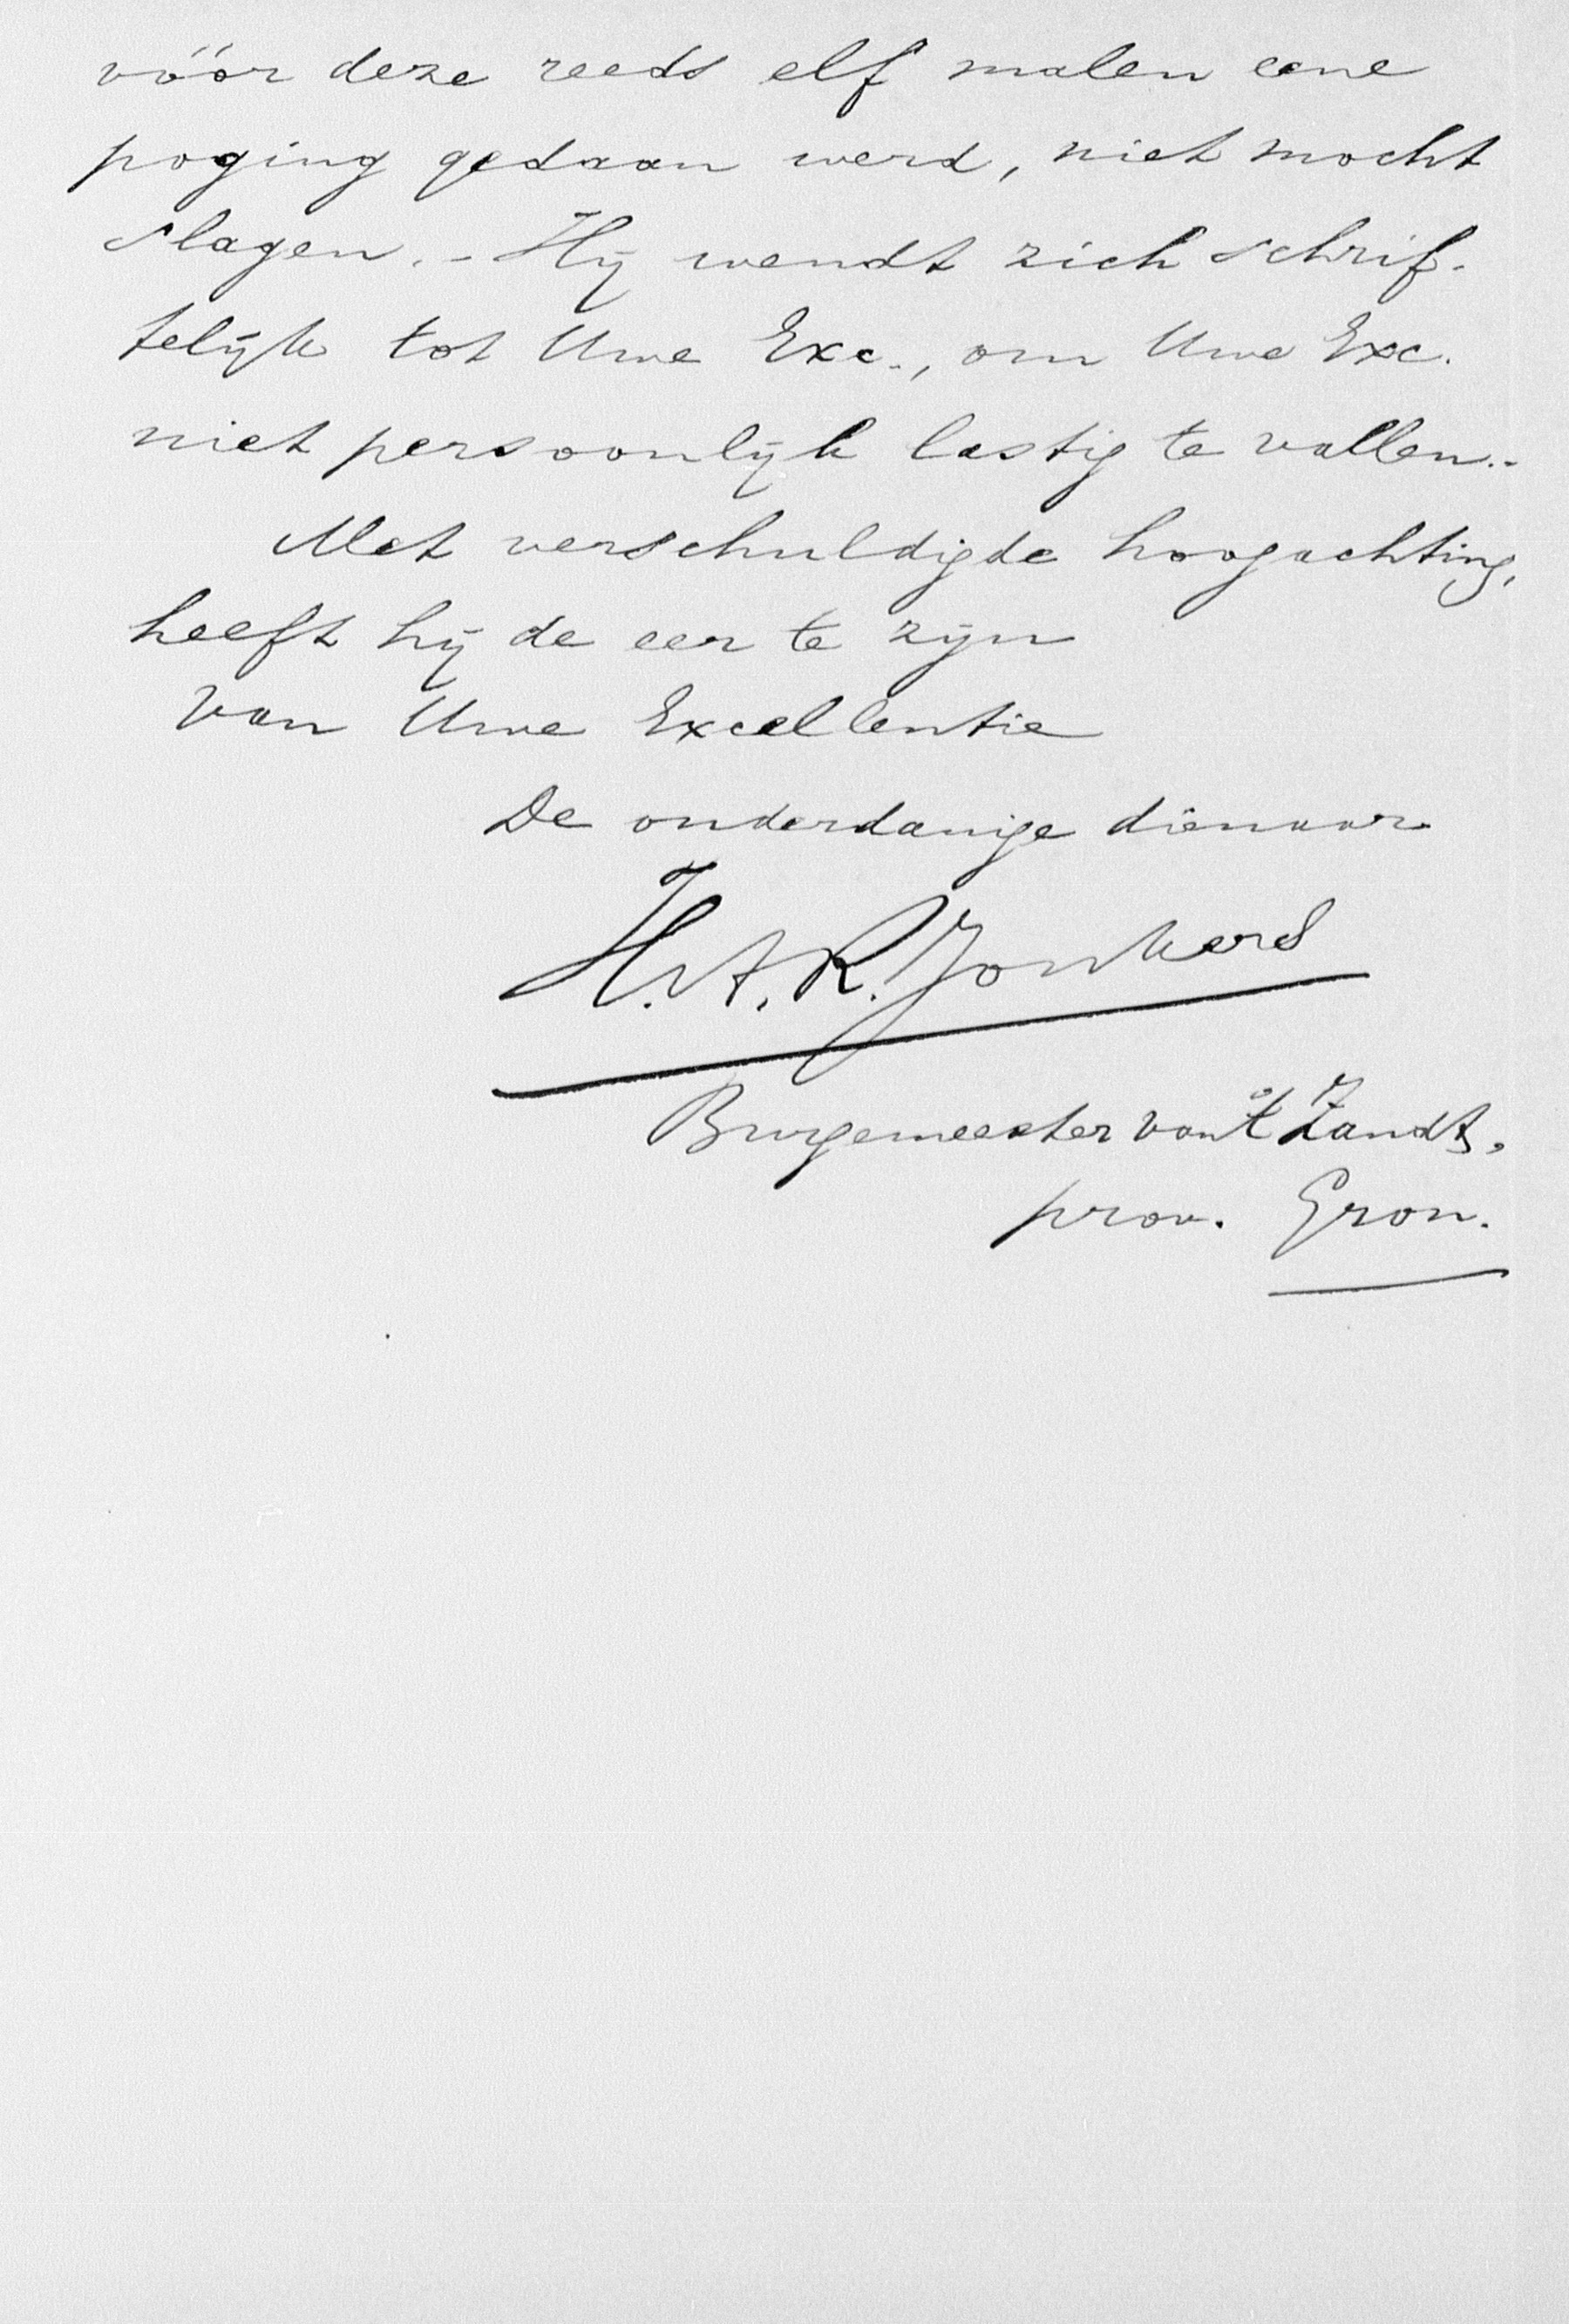 vóór deze reeds elf malen eene
poging gedaan werd, niet mocht
slagen. - Hij wendt zich schrif-
telijk tot Uwe Exc., om Uwe Exc.
niet persoonlijk lastig te vallen.-
Met verschuldigde hoogachting,
heeft hij de eer te zijn
Van Uwe Excellentie
De onderdanige dienaar
H. A. R. Jonkers
Burgemeester van 't Zandt,
prov. Gron.